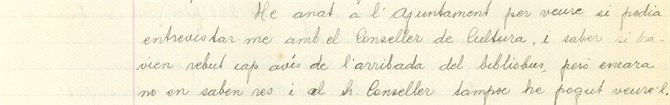 He anat a l'Ajuntament per veure si podia
entrevistar me amb el Conseller de Cultura, i saber si ha-
vien rebut cap avís de l'arribada del bibliobus, però encara
no en saben res i al h. Conseller tampoc he pogut veure'l.